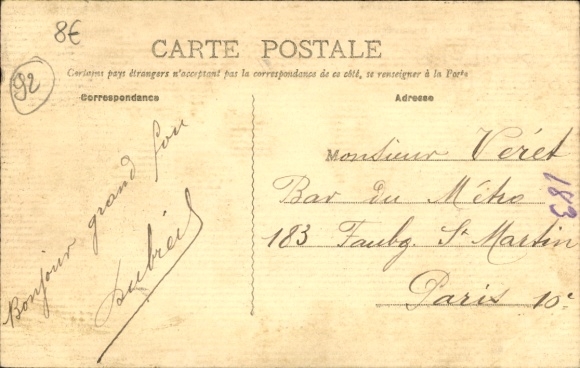 8€
92
CARTE POSTALE
Certains pays étrangers n'acceptant pas la correspondance de ce côté, se renseigner à la Poste
Correspondance
Adresse
Bonjour grand fou
Monsieur Véret
Bar du Métro
183 Faubg. St Martin
Paris 10e
183